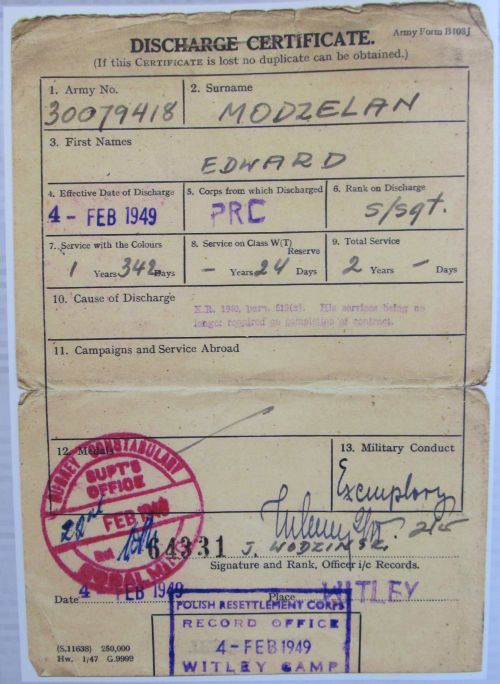 Army Form B108J
DISCHARGE CERTIFICATE.
(If this CERTIFICATE is lost no duplicate can be obtained.)
1. Army No.
30079418
2. Surname
MODZELAN
3. First Names
EDWARD
4. Effective Date of Discharge
4 - FEB 1949
5. Corps from which Discharged
PRC
6. Rank on Discharge
S/Sgt.
7. Service with the Colours
1 Years 342 Days
8. Service on Class W(T) Reserve
- Years 24 Days
9. Total Service
2 Years - Days
10. Cause of Discharge
K.R. 1940, para. His services being no
longer required on completion of contract.
11. Campaigns and Service Abroad
12. Medals
13. Military Conduct
Exemplary
SURREY CONSTABULARY
SUPT'S
OFFICE
22nd FEB 1949
GODALMING
64331
J. WODZINSKI
Signature and Rank, Officer i/c Records.
Date 4 FEB 1949
Place WITLEY
POLISH RESETTLEMENT CORPS
RECORD OFFICE
4 - FEB 1949
WITLEY CAMP
(S.11638) 250,000
Hw. 1/47 G.9999